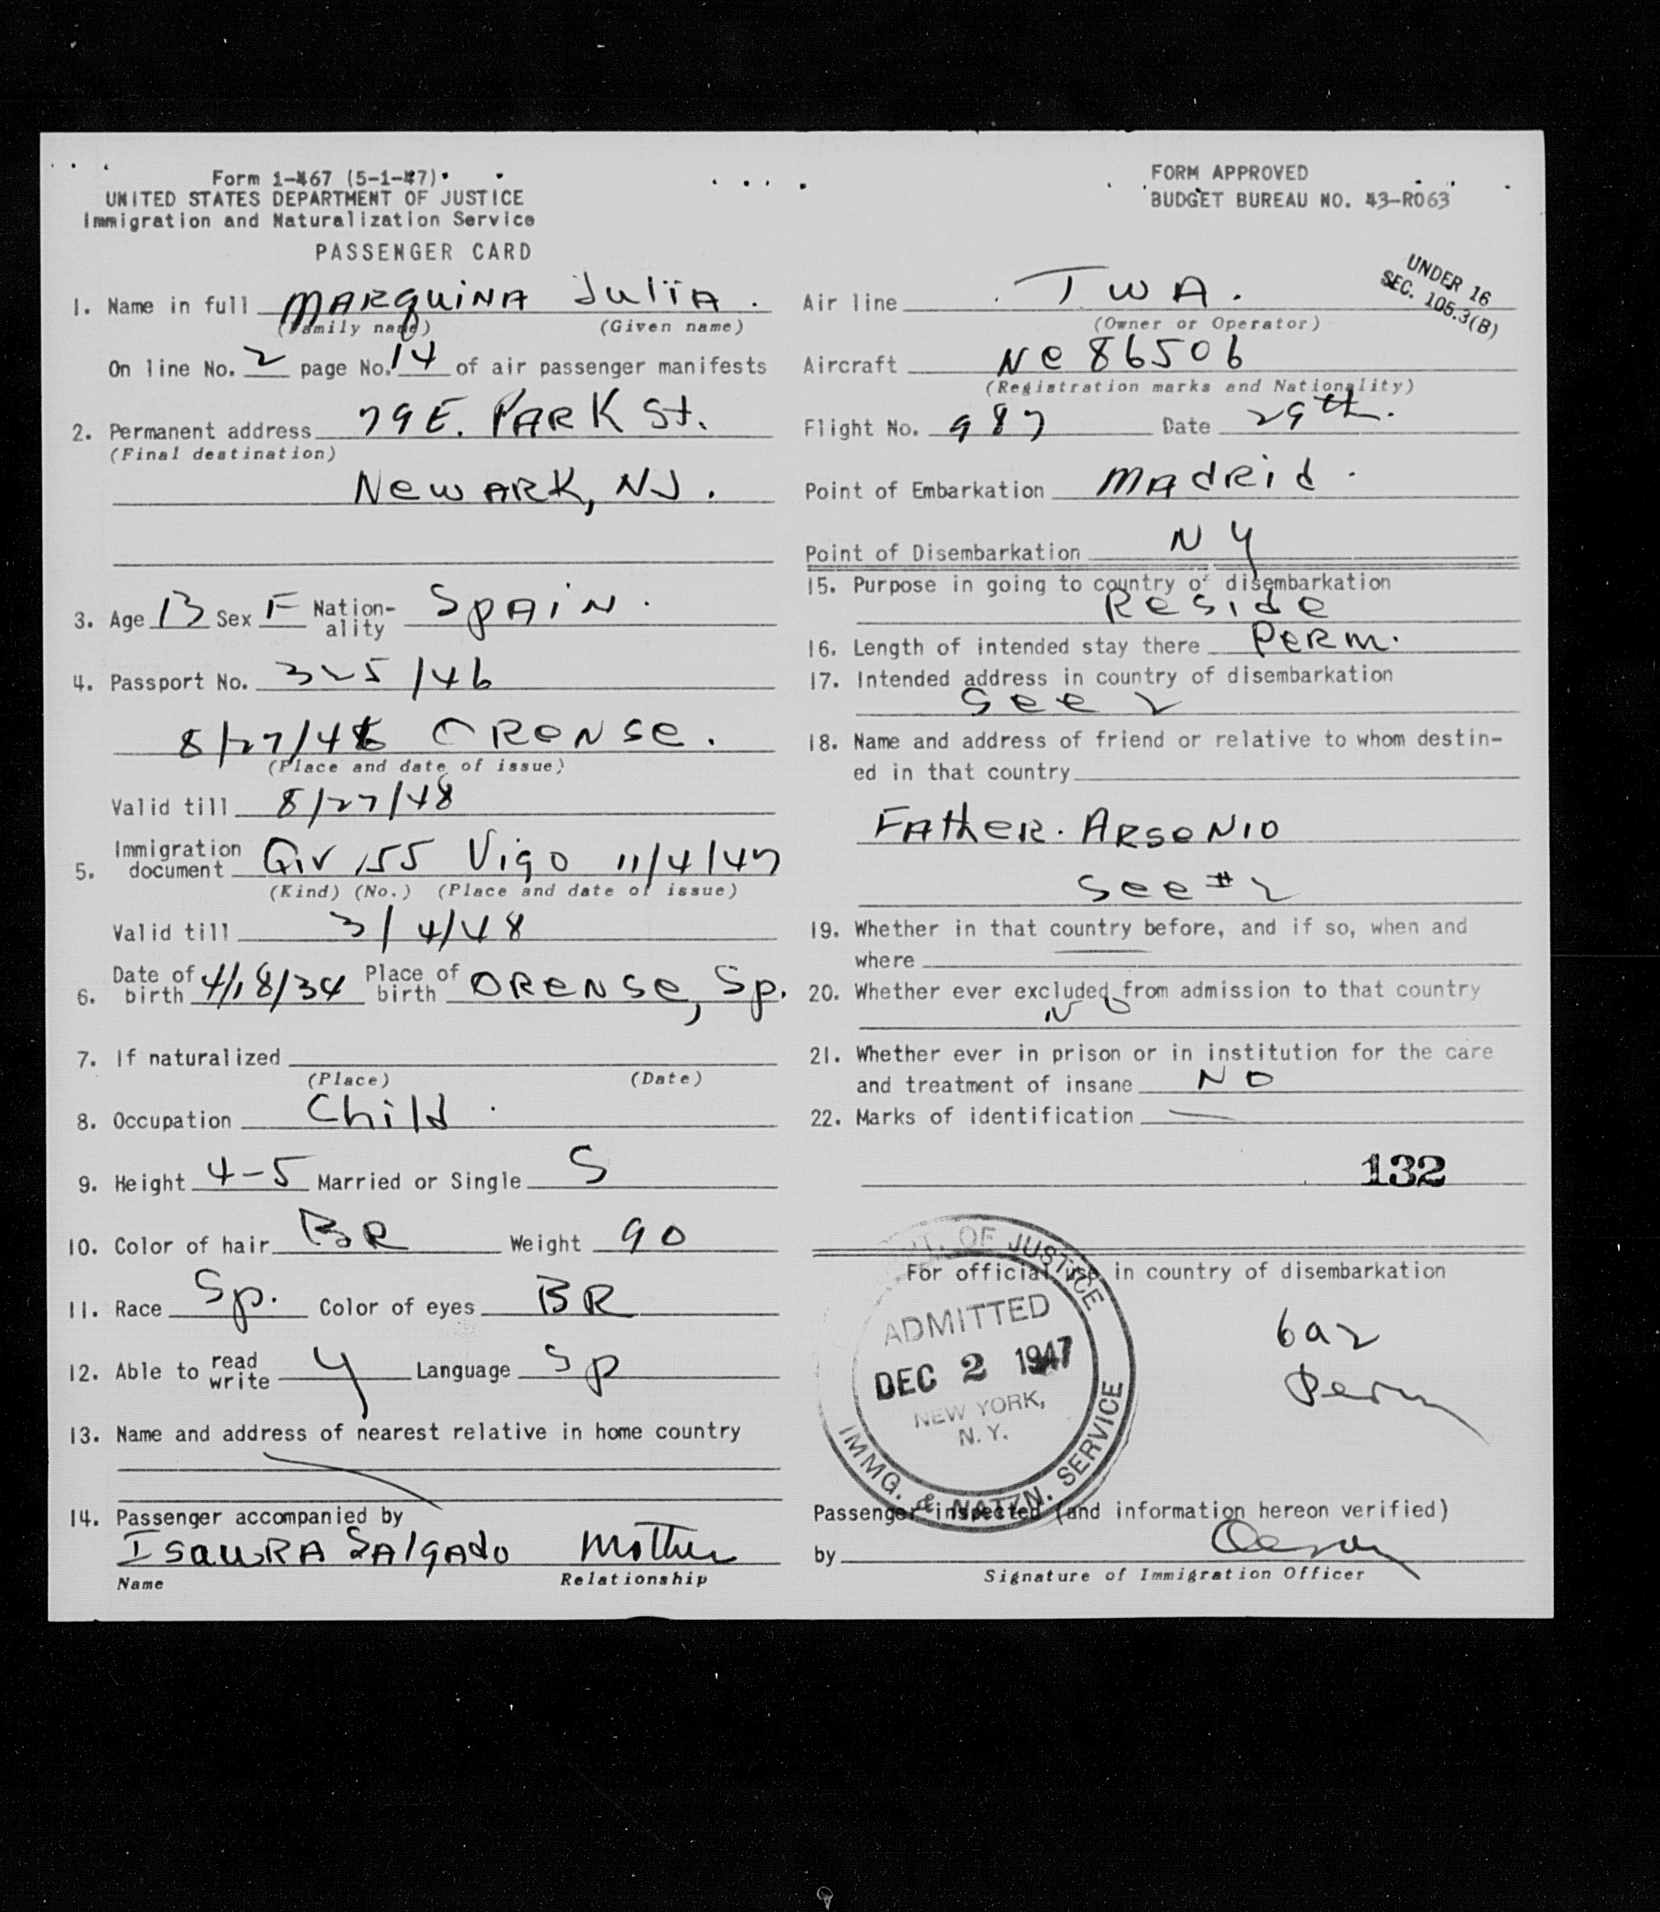 Form 1-467 (5-1-47)
UNITED STATES DEPARTMENT OF JUSTICE
Immigration and Naturalization Service
PASSENGER CARD
1. Name in full MARQUINA Julia.
(Family name) (Given name)
On line No. 2 page No. 14 of air passenger manifests
2. Permanent address 79 E. PARK St.
(Final destination)
NewARK, NJ.
3. Age 13 Sex F Nation-ality SpAiN.
4. Passport No. 325/46
8/27/46 ORENSe.
(Place and date of issue)
Valid till 8/27/48
5. Immigration document QIV 155 Vigo 11/4/47
(Kind) (No.) (Place and date of issue)
Valid till 3/4/48
6. Date of birth 4/18/34 Place of birth ORENSe, Sp.
7. If naturalized
(Place) (Date)
8. Occupation Child.
9. Height 4-5 Married or Single S
10. Color of hair BR Weight 90
11. Race Sp. Color of eyes BR
12. Able to read write y Language Sp
13. Name and address of nearest relative in home country
14. Passenger accompanied by
IsauRA SAlgAdo Mother
Name Relationship
FORM APPROVED
BUDGET BUREAU NO. 43-R063
UNDER 16
SEC. 105.3(B)
Air line TWA.
(Owner or Operator)
Aircraft NC 86506
(Registration marks and Nationality)
Flight No. 987 Date 29th.
Point of Embarkation MAdRid.
Point of Disembarkation NY
15. Purpose in going to country of disembarkation
Reside
16. Length of intended stay there PeRM.
17. Intended address in country of disembarkation
See 2
18. Name and address of friend or relative to whom destin-
ed in that country
FATheR. ARSeNIO
See #2
19. Whether in that country before, and if so, when and
where
20. Whether ever excluded from admission to that country
No
21. Whether ever in prison or in institution for the care
and treatment of insane NO
22. Marks of identification —
132
For official use in country of disembarkation
6a2
Perm
T. OF JUSTICE
ADMITTED
DEC 2 1947
NEW YORK,
N. Y.
IMMG. & NATZN. SERVICE
Passenger inspected (and information hereon verified)
by
Signature of Immigration Officer